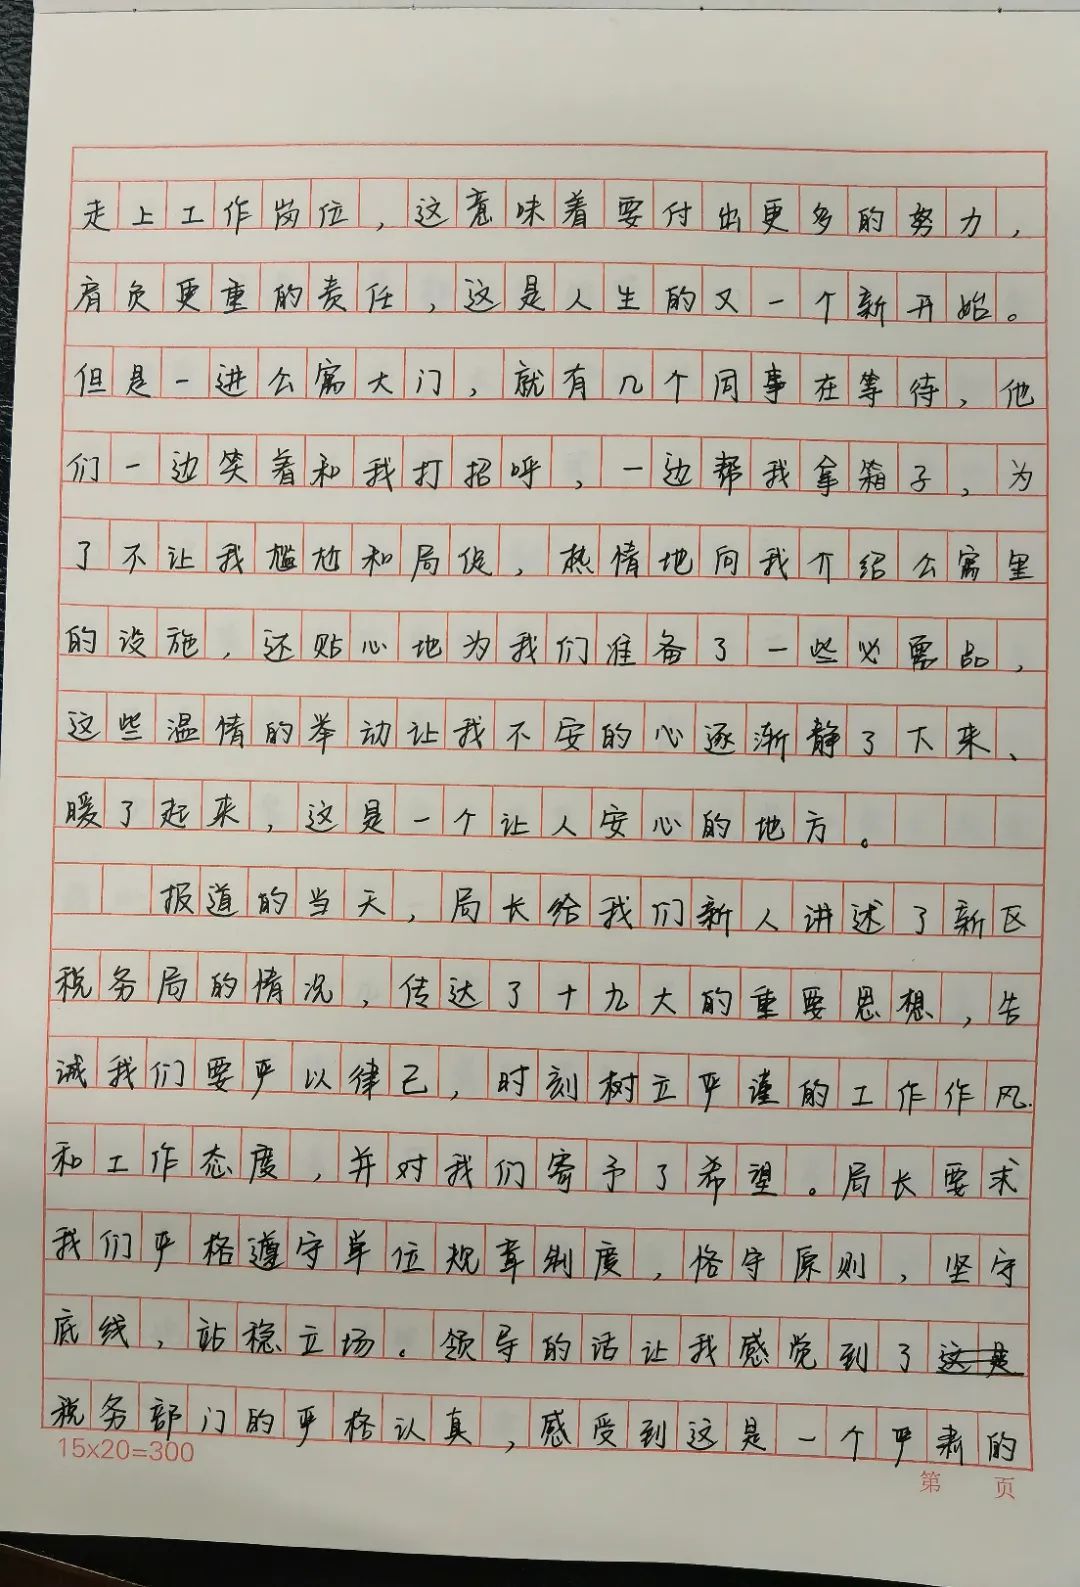 走上工作岗位，这意味着要付出更多的努力，
肩负更重的责任，这是人生的又一个新开始。
但是一进公寓大门，就有几个同事在等待，他
们一边笑着和我打招呼，一边帮我拿箱子，为
了不让我尴尬和局促，热情地向我介绍公寓里
的设施，还贴心地为我们准备了一些必需品，
这些温情的举动让我不安的心逐渐静了下来、
暖了起来，这是一个让人安心的地方。
报道的当天，局长给我们新人讲述了新区
税务局的情况，传达了十九大的重要思想，告
诫我们要严以律己，时刻树立严谨的工作作风
和工作态度，并对我们寄予了希望。局长要求
我们严格遵守单位规章制度，恪守原则，坚守
底线，站稳立场。领导的话让我感觉到了这是
税务部门的严格认真，感受到这是一个严肃的
15×20=300
第 页